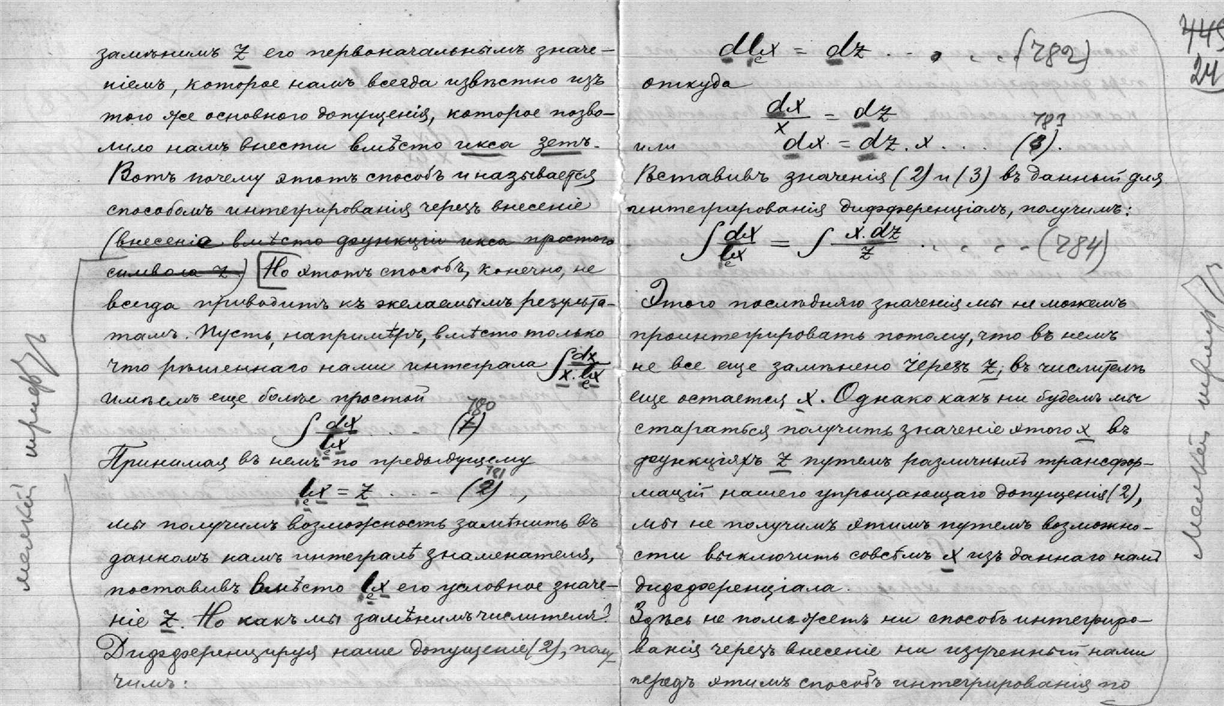 замѣнимъ z его первоначальнымъ значе-
ніемъ, которое намъ всегда извѣстно изъ
того же основного допущенія, которое позво-
лило намъ внести вмѣсто икса зетъ.
Вотъ почему этотъ способъ и называется
способомъ интегрированія черезъ внесеніе
(внесеніе вмѣсто функціи икса простого
символа z.) Но этотъ способъ, конечно, не
всегда приводитъ къ желаемымъ резуль-
татамъ. Пусть, напримѣръ, вмѣсто только
что рѣшеннаго нами интеграла ∫ dx / x.lx
имѣемъ еще болѣе простой
∫ dx / lx (780)
Принимая въ немъ по предыдущему
lx = z . . . - (2) 781 ,
мы получимъ возможность замѣнить въ
данномъ намъ интегралѣ знаменателя,
поставивъ вмѣсто lx его условное значе-
ніе z. Но какъ мы замѣнимъ числителя?
Дифференцируя наше допущеніе (2), полу-
чимъ:
мелкій шрифтъ
445
24
dlx = dz . . , . . (782)
откуда
dx / x = dz
или dx = dz . x . . . (3) 783.
Вставивъ значенія (2) и (3) въ данный для
интегрированія дифференціалъ, получимъ:
∫ dx / lx = ∫ x.dz / z . . . . (784)
Этого послѣдняго значенія мы не можемъ
проинтегрировать потому, что въ немъ
не все еще замѣнено черезъ z; въ числителѣ
еще остается x. Однако какъ ни будемъ мы
стараться получить значеніе этого x въ
функціяхъ z путемъ различныхъ трансфор-
мацій нашего упрощающаго допущенія (2),
мы не получимъ этимъ путемъ возможно-
сти выключить совсѣмъ x изъ даннаго намъ
дифференціала.
Здѣсь не поможетъ ни способъ интегриро-
ванія черезъ внесеніе ни изученный нами
передъ этимъ способъ интегрированія по
Мелкій шрифтъ